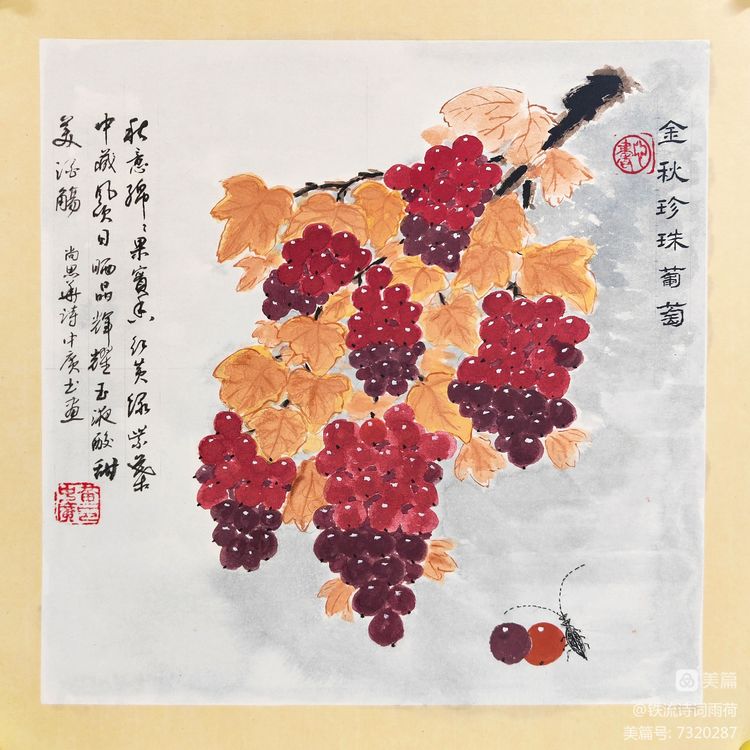 金秋珍珠葡萄
秋意绵〻果實香红黄绿紫葉
中藏风吹日晒晶輝耀玉液酸甜
美酒觴
尚思華诗中廣书画
美篇
@铁流诗词雨荷
美篇号: 7320287